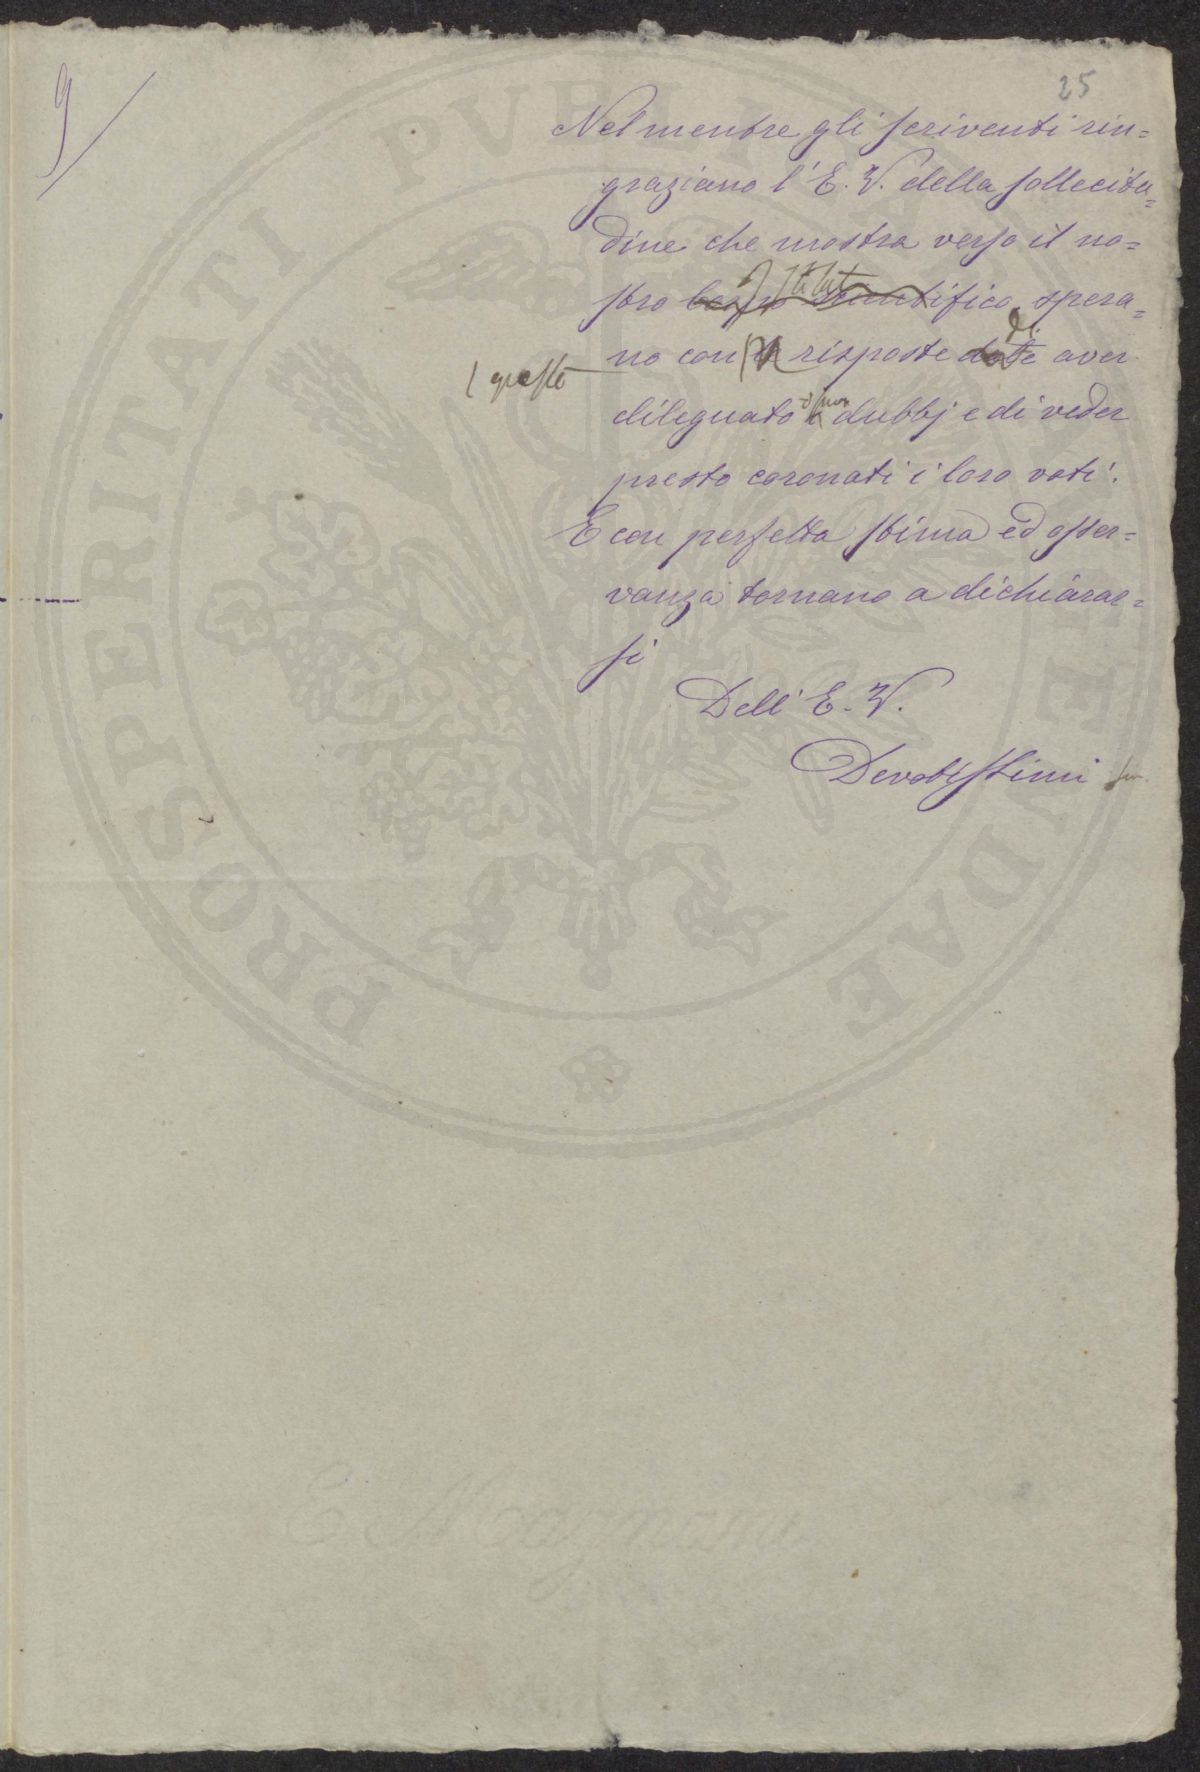 9
25
Nel mentre gli scriventi rin=
graziano l'E. V. della sollecitu=
dine che mostra verso il no=
Istituto
stro corpo scientifico, spera=
di
no con le risposte date aver
queste
dileguato i dubbj e di veder
presto coronati i loro voti.
E con perfetta stima ed osser=
vanza tornano a dichiarar=
si
Dell' E. V.
Devotissimi
PROSPERITATI PVBLICAE AVGENDAE
E Magnani